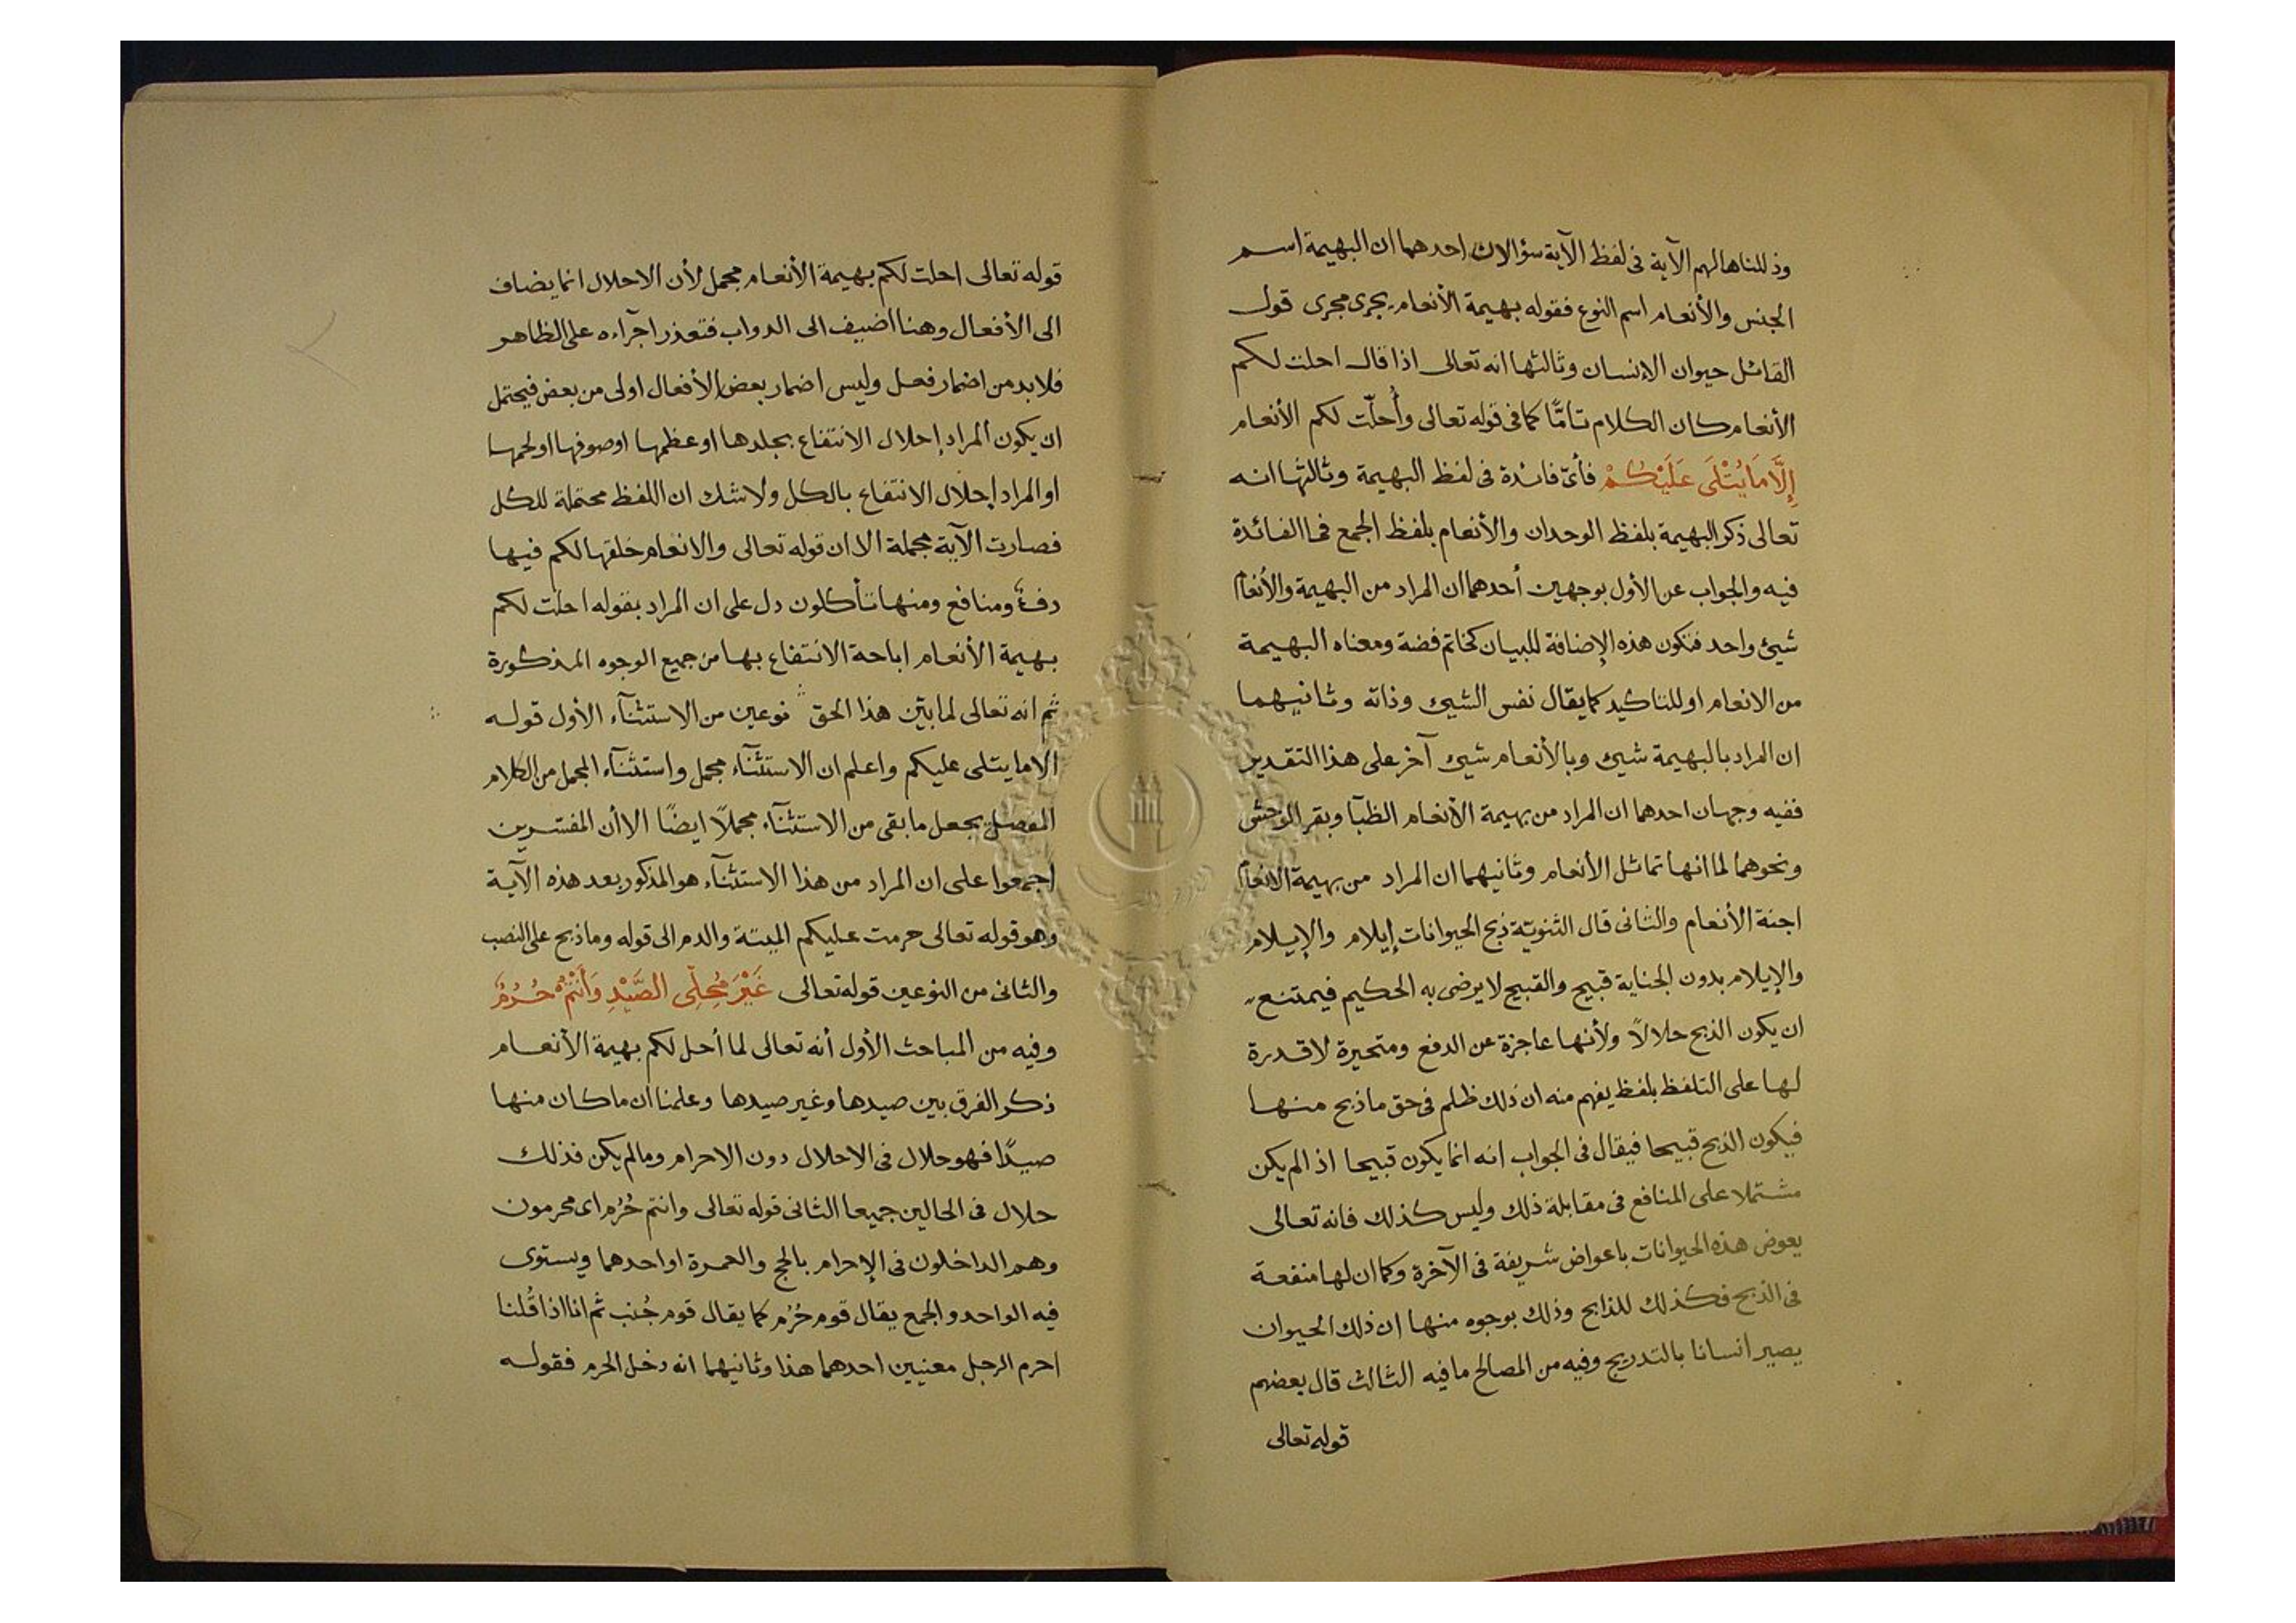 وذللناها لهم الآية فى لفظ الآية سؤالات احدهما ان البهيمة اسم
الجنس والأنعام اسم النوع فقوله بهيمة الأنعام يجرى مجرى قول
القائل حيوان الإنسان وثالثها انه تعالى اذا قال احلت لكم
الأنعام كان الكلام تامًّا كما فى قوله تعالى وأُحلّت لكم الأنعام
إِلَّا مَا يُتْلَى عَلَيْكُمْ فأىّ فائدة فى لفظ البهيمة وثالثها انه
تعالى ذكر البهيمة بلفظ الوحدان والأنعام بلفظ الجمع فما الفائدة
فيه والجواب عن الأول بوجهين أحدهما ان المراد من البهيمة والأنعام
شيئ واحد فتكون هذه الإضافة للبيان كخاتم فضة ومعناه البهيمة
من الانعام او للتاكيد كما يقال نفس الشيئ وذاته وثانيهما
ان المراد بالبهيمة شيئ وبالأنعام شيئ آخر على هذا التقدير
ففيه وجهان احدهما ان المراد من بهيمة الأنعام الظبآ وبقر الوحش
ونحوهما لما انها تماثل الأنعام وثانيهما ان المراد من بهيمة الانعام
اجنة الأنعام والثانى قال الثنويّة ذبح الحيوانات إيلام والإيلام
والإيلام بدون الجناية قبيح والقبيح لا يرضى به الحكيم فيمتنع
ان يكون الذبح حلالاً ولأنها عاجزة عن الدفع ومتحيرة لا قدرة
لها على التلفظ بلفظ يفهم منه ان ذلك ظلم فى حق ما ذبح منها
فيكون الذبح قبيحا فيقال فى الجواب انه انما يكون قبيحا اذ الم يكن
مشتملا على المنافع فى مقابلة ذلك وليس كذلك فانه تعالى
يعوض هذه الحيوانات باعواض شريفة فى الآخرة وكما ان لها منفعة
فى الذبح فكذلك للذابح وذلك بوجوه منها ان ذلك الحيوان
يصير انسانا بالتدريج وفيه من المصالح ما فيه الثالث قال بعضهم
قوله تعالى
قوله تعالى احلت لكم بهيمة الأنعام مجمل لأن الاحلال انما يضاف
الى الأفعال وهنا اضيف الى الدواب فتعذر اجرآءه على الظاهر
فلا بد من اضمار فعل وليس اضمار بعض الأفعال اولى من بعض فيحتمل
ان يكون المراد إحلال الانتفاع بجلدها او عظمها او صوفها او لحمها
او المراد إحلال الانتفاع بالكل ولا شك ان اللفظ محتملة للكل
فصارت الآية مجملة الا ان قوله تعالى والانعام خلقها لكم فيها
دفءٌ ومنافع ومنها تأكلون دل على ان المراد بقوله احلت لكم
بهيمة الأنعام اباحة الانتفاع بها من جميع الوجوه المذكورة
ثم انه تعالى لما بيّن هذا الحق نوعين من الاستثنآء الأول قوله
الا ما يتلى عليكم واعلم ان الاستثنآء مجمل واستثنآء المجمل من الكلام
المفصل يجعل ما بقى من الاستثنآء مجملاً ايضًا الا أن المفسّرين
اجمعوا على ان المراد من هذا الاستثنآء هو المذكور بعد هذه الآية
وهو قوله تعالى حرمت عليكم الميتة والدم الى قوله وما ذبح على النصب
والثانى من النوعين قوله تعالى غَيْرَ مُحِلِّى الصَّيْدِ وَأَنْتُمْ حُرُمٌ
وفيه من المباحث الأول أنه تعالى لما أحل لكم بهيمة الأنعام
ذكر الفرق بين صيدها وغير صيدها وعلمنا ان ما كان منها
صيدًا فهو حلال فى الاحلال دون الاحرام وما لم يكن فذلك
حلال فى الحالين جميعا الثانى قوله تعالى وانتم حُرُم اى محرمون
وهم الداخلون فى الإحرام بالحج والعمرة او احدهما ويستوى
فيه الواحد والجمع يقال قوم حُرُم كما يقال قوم جُنب ثم انا اذا قُلنا
احرم الرجل معنيين احدهما هذا وثانيهما انه دخل الحرم فقوله